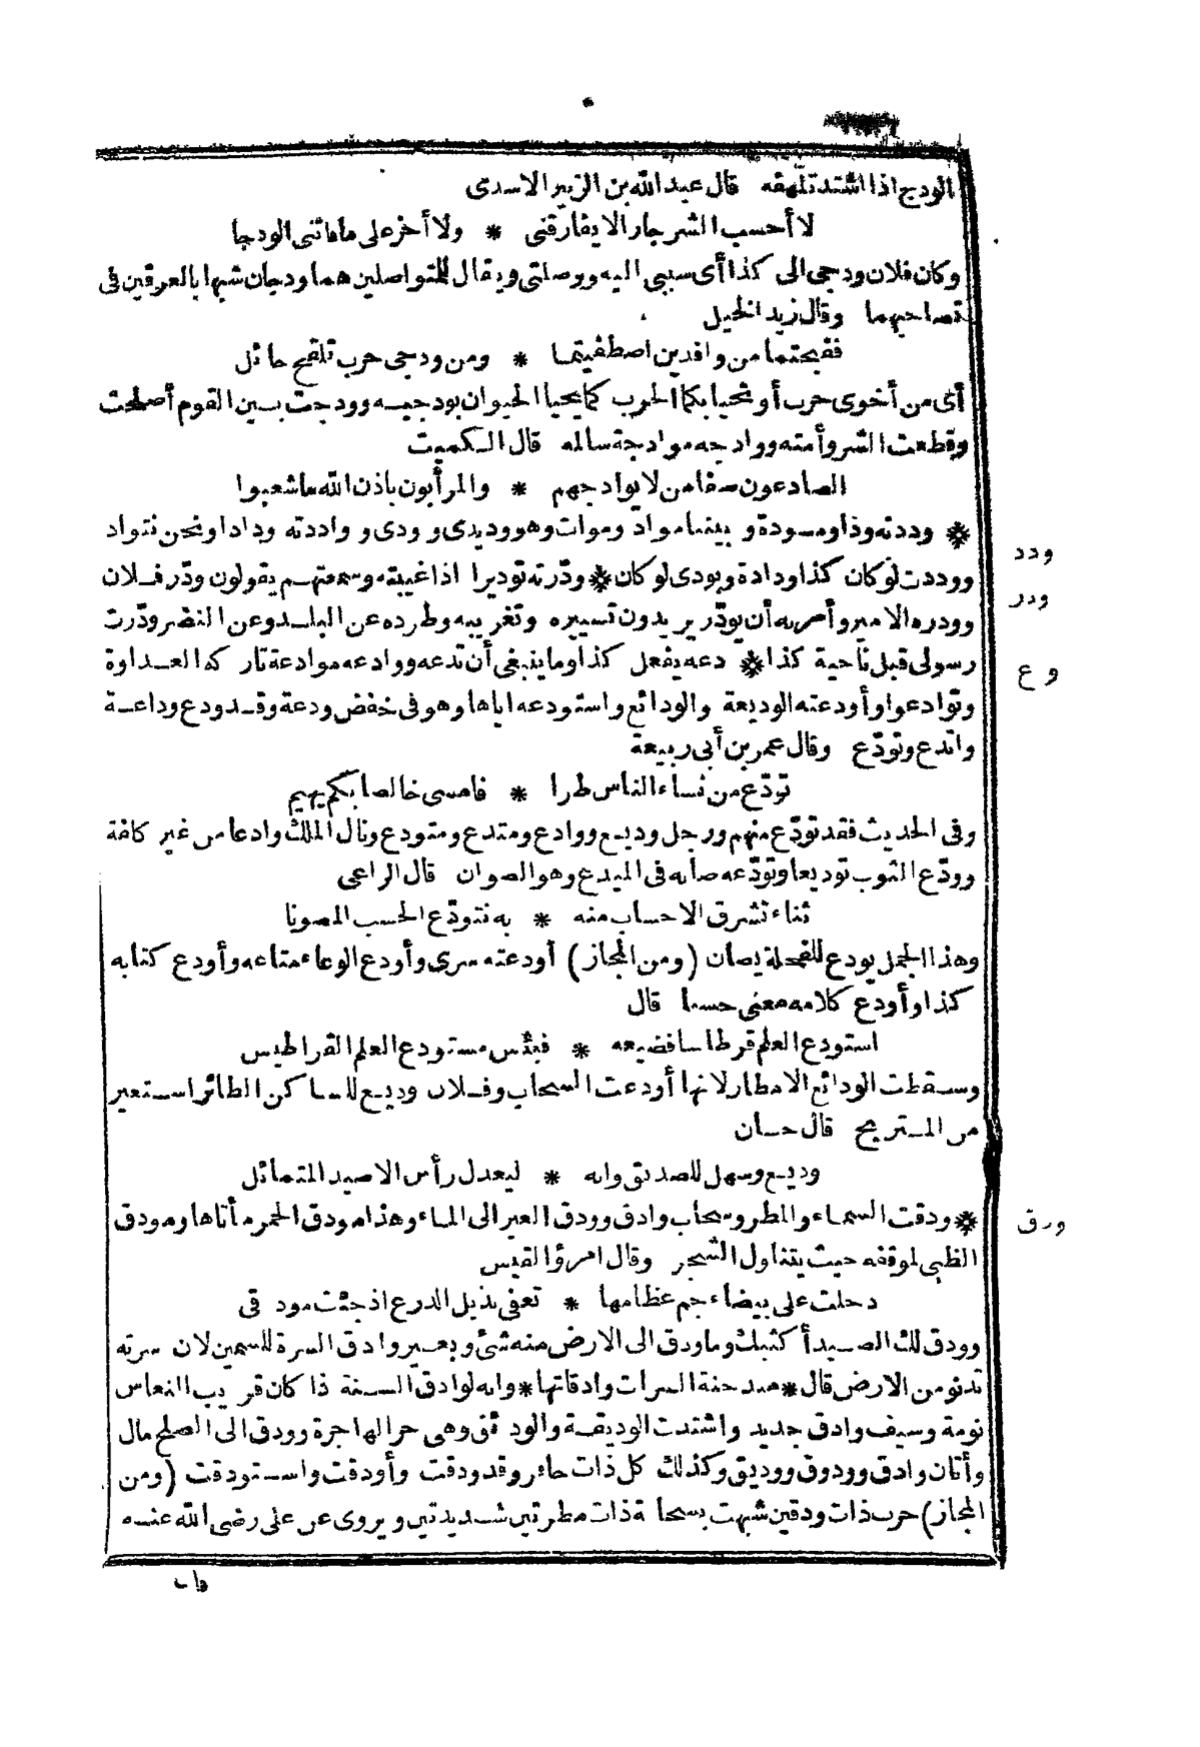 الودج اذا اشتد تلهقه قال عبد الله بن الزبير الاسدى
لا أحسب الشر جارا لا يفارقنى * ولا أخر على ما فاتنى الودجا
وكان فلان ودجى الى كذا أى سببى اليه ووصلتى ويقال للمتواصلين هما ودجان شبها بالعرقين فى
تصاحبهما وقال زيد الخيل
فقبحتما من وافدين اصطفيتما * ومن ودجى حرب تلقح حائل
أى من أخوى حرب أو تحيا بكما الحرب كما يحيا الحيوان بودجيه وودجت بين القوم أصلحت
وقطعت الشر وأمته ووادجه موادجة سالمه قال الكميت
الصادعون صفا من لا يوادجهم * والمرأبون باذن الله ما شعبوا
* وددته ودا ومودة وبينهما مواد وموات وهو وديدى وودى وواددته ودادا ونحن نتواد
ودد
ووددت لو كان كذا ودادة وبودى لو كان * ودّرته توديرا اذا غيبته وسمعتهم يقولون ودّر فلان
ودر
وودره الامير وأمر به أن يودّر يريدون تسييره وتغريبه وطرده عن البلد وعن النضر ودّرت
رسولى قبل ناحية كذا * دعه يفعل كذا وما ينبغى أن تدعه ووادعه موادعة تاركه العداوة
و ع
وتوادعوا وأودعته الوديعة والودائع واستودعه اياها وهو فى خفض ودعة وقد ودع وداعة
واتدع وتودّع وقال عمر بن أبى ربيعة
تودّع من نساء الناس طرا * فامسى خالصا بكم يهيم
وفى الحديث فقد تودّع منهم ورجل وديع ووادع ومتدع ومتودع ونال الملك وادعا من غير كلفة
وودّع الثوب توديعا وتودّعه صانه فى الميدع وهو الصوان قال الراعى
ثناء تشرق الاحساب منه * به نتودّع الحسب المصونا
وهذا الجمل يودع للفحلة يصان (ومن المجاز) أودعته سرى وأودع الوعاء متاعه وأودع كتابه
كذا وأودع كلامه معنى حسنا قال
استودع العلم قرطاسا فضيعه * فبئس مستودع العلم القراطيس
وسقطت الودائع الامطار لانها أودعت السحاب وفلان وديع للساكن الطائر استعير
من المستريح قال حسان
وديع وسهل للصديق وانه * ليعدل رأس الاصيد المتمائل
* ودقت السماء والمطر وسحاب وادق وودق العير الى الماء وهذا مودق الحمر مأتاها ومودق
ودق
الظبى لموقفه حيث يتناول الشجر وقال امرؤ القيس
دخلت على بيضاء جم عظامها * تعفى بذيل الدرع اذ جئت مودقى
وودق لك الصيد أكثبك وما ودق الى الارض منه شئ وبعير وادق السرة للسمين لان سرته
تدنو من الارض قال * مندحنة السرات وادقاتها * وانه لوادق السنة اذا كان قريب النعاس
نومة وسيف وادق جديد واشتدت الوديقة والودئق وهى حر الهاجرة وودق الى الصلح مال
وأتان وادق وودوق ووديق وكذلك كل ذات حافر وقد ودقت وأودقت واستودقت (ومن
المجاز) حرب ذات ودقين شبهت بسحابة ذات مطرتين شديدتين ويروى عن على رضى الله عنه